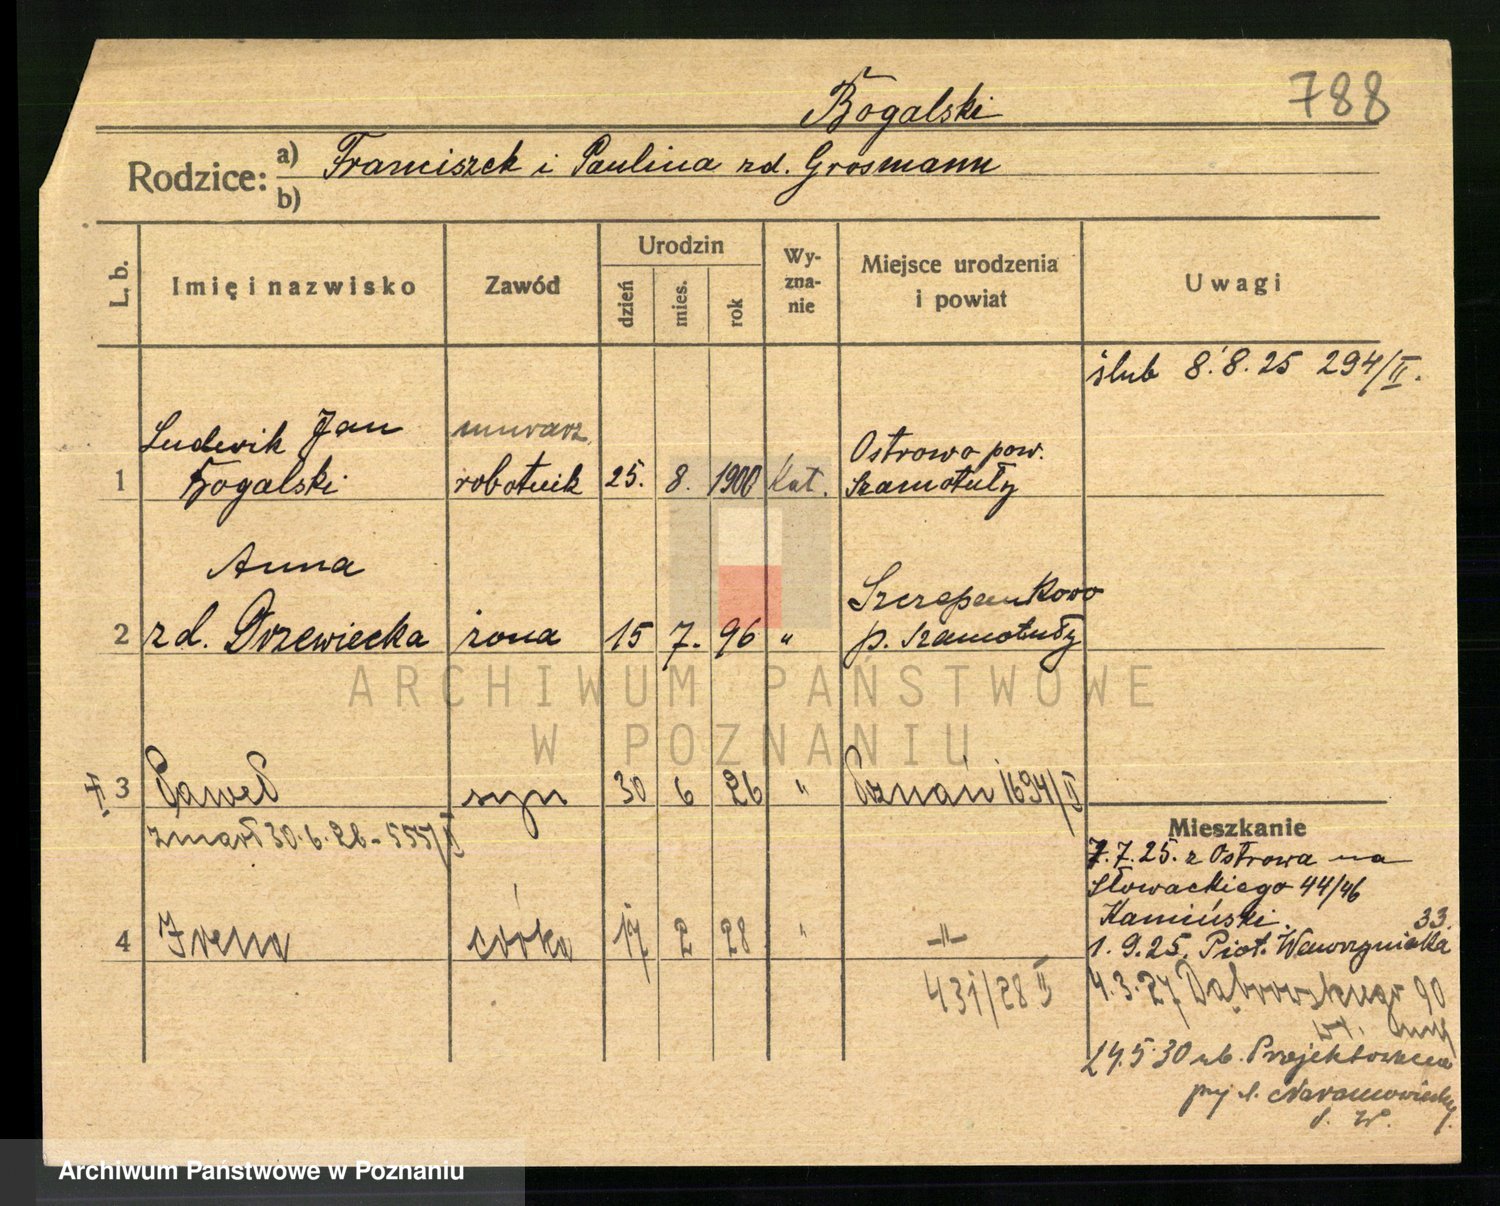 Bogalski 788
Rodzice: a) Franciszek i Paulina zd. Grosmann
b)
L. b. Imię i nazwisko Zawód Urodzin dzień mies. rok Wy-zna-nie Miejsce urodzenia i powiat Uwagi
ślub 8.8.25 294/II.
1 Ludwik Jan Bogalski murarz robotnik 25. 8. 1900 kat. Ostrowo pow. Szamotuły
2 Anna zd. Drzewiecka żona 15 7. 96 " Szczepankowo p. Szamotuły
3 Paweł syn 30 6 26 " Poznań 1694/II
zmarł 30.6.26 - 555/II
Mieszkanie
7.7.25. z Ostrowa na
Słowackiego 44/46
Kamiński.
33.
1.9.25. Piot. Wawrzyniaka
4 Irena córka 17 2 28 " -"-
431/28 II
4.3.27 Dąbrowskiego 90
24.5.30 ul. Projektowana
przy ul. Naramowickiej
ARCHIWUM PAŃSTWOWE
W POZNANIU
Archiwum Państwowe w Poznaniu